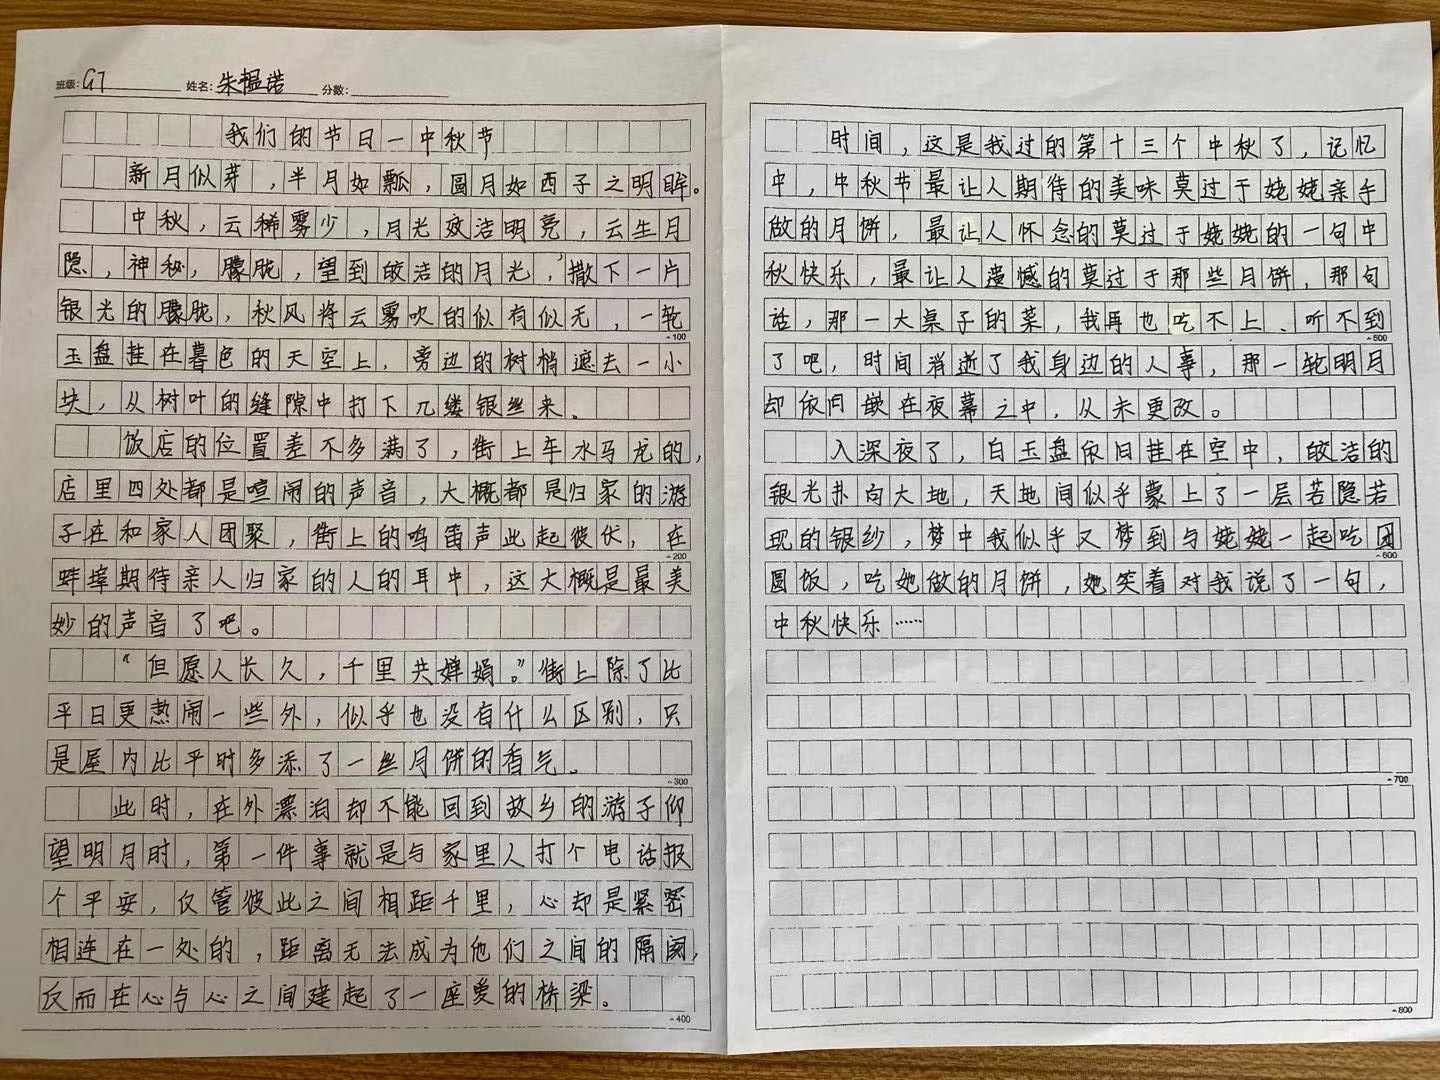 班级: G7 姓名: 朱韫诺 分数:
我们的节日一中秋节
新月似芽,半月如瓢,圆月如西子之明眸。
中秋,云稀雾少,月光皎洁明亮,云生月
隐,神秘,朦胧,望到皎洁的月光,撒下一片
银光的朦胧,秋风将云雾吹的似有似无,一轮
玉盘挂在暮色的天空上,旁边的树梢遮去一小
块,从树叶的缝隙中打下几缕银丝来。
饭店的位置差不多满了,街上车水马龙的,
店里四处都是喧闹的声音,大概都是归家的游
子在和家人团聚,街上的鸣笛声此起彼伏,在
蚌埠期待亲人归家的人的耳中,这大概是最美
妙的声音了吧。
“但愿人长久,千里共婵娟。”街上除了比
平日更热闹一些外,似乎也没有什么区别,只
是屋内比平时多添了一丝月饼的香气。
此时,在外漂泊却不能回到故乡的游子仰
望明月时,第一件事就是与家里人打个电话报
个平安,仅管彼此之间相距千里,心却是紧密
相连在一处的,距离无法成为他们之间的隔阂,
反而在心与心之间建起了一座爱的桥梁。
时间,这是我过的第十三个中秋了,记忆
中,中秋节最让人期待的美味莫过于姥姥亲手
做的月饼,最让人怀念的莫过于姥姥的一句中
秋快乐,最让人遗憾的莫过于那些月饼,那句
话,那一大桌子的菜,我再也吃不上、听不到
了吧,时间消逝了我身边的人事,那一轮明月
却依旧嵌在夜幕之中,从未更改。
入深夜了,白玉盘依旧挂在空中,皎洁的
银光扑向大地,天地间似乎蒙上了一层若隐若
现的银纱,梦中我似乎又梦到与姥姥一起吃团
圆饭,吃她做的月饼,她笑着对我说了一句,
中秋快乐……
~100
~200
~300
~400
~500
~600
~700
~800